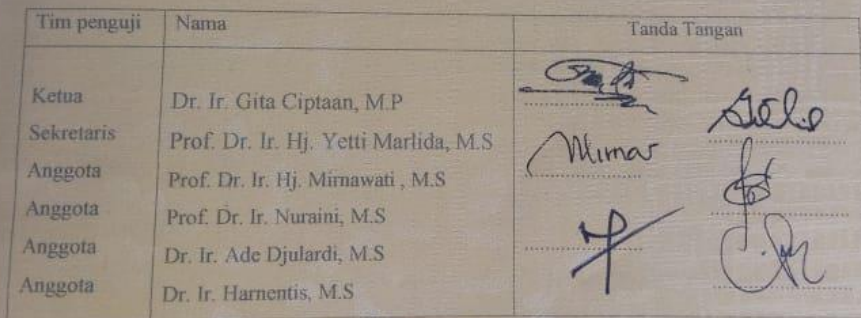 Tim penguji Nama Tanda Tangan
Ketua Dr. Ir. Gita Ciptaan, M.P
Sekretaris Prof. Dr. Ir. Hj. Yetti Marlida, M.S
Anggota Prof. Dr. Ir. Hj. Mirnawati , M.S
Anggota Prof. Dr. Ir. Nuraini, M.S
Anggota Dr. Ir. Ade Djulardi, M.S
Anggota Dr. Ir. Harnentis, M.S